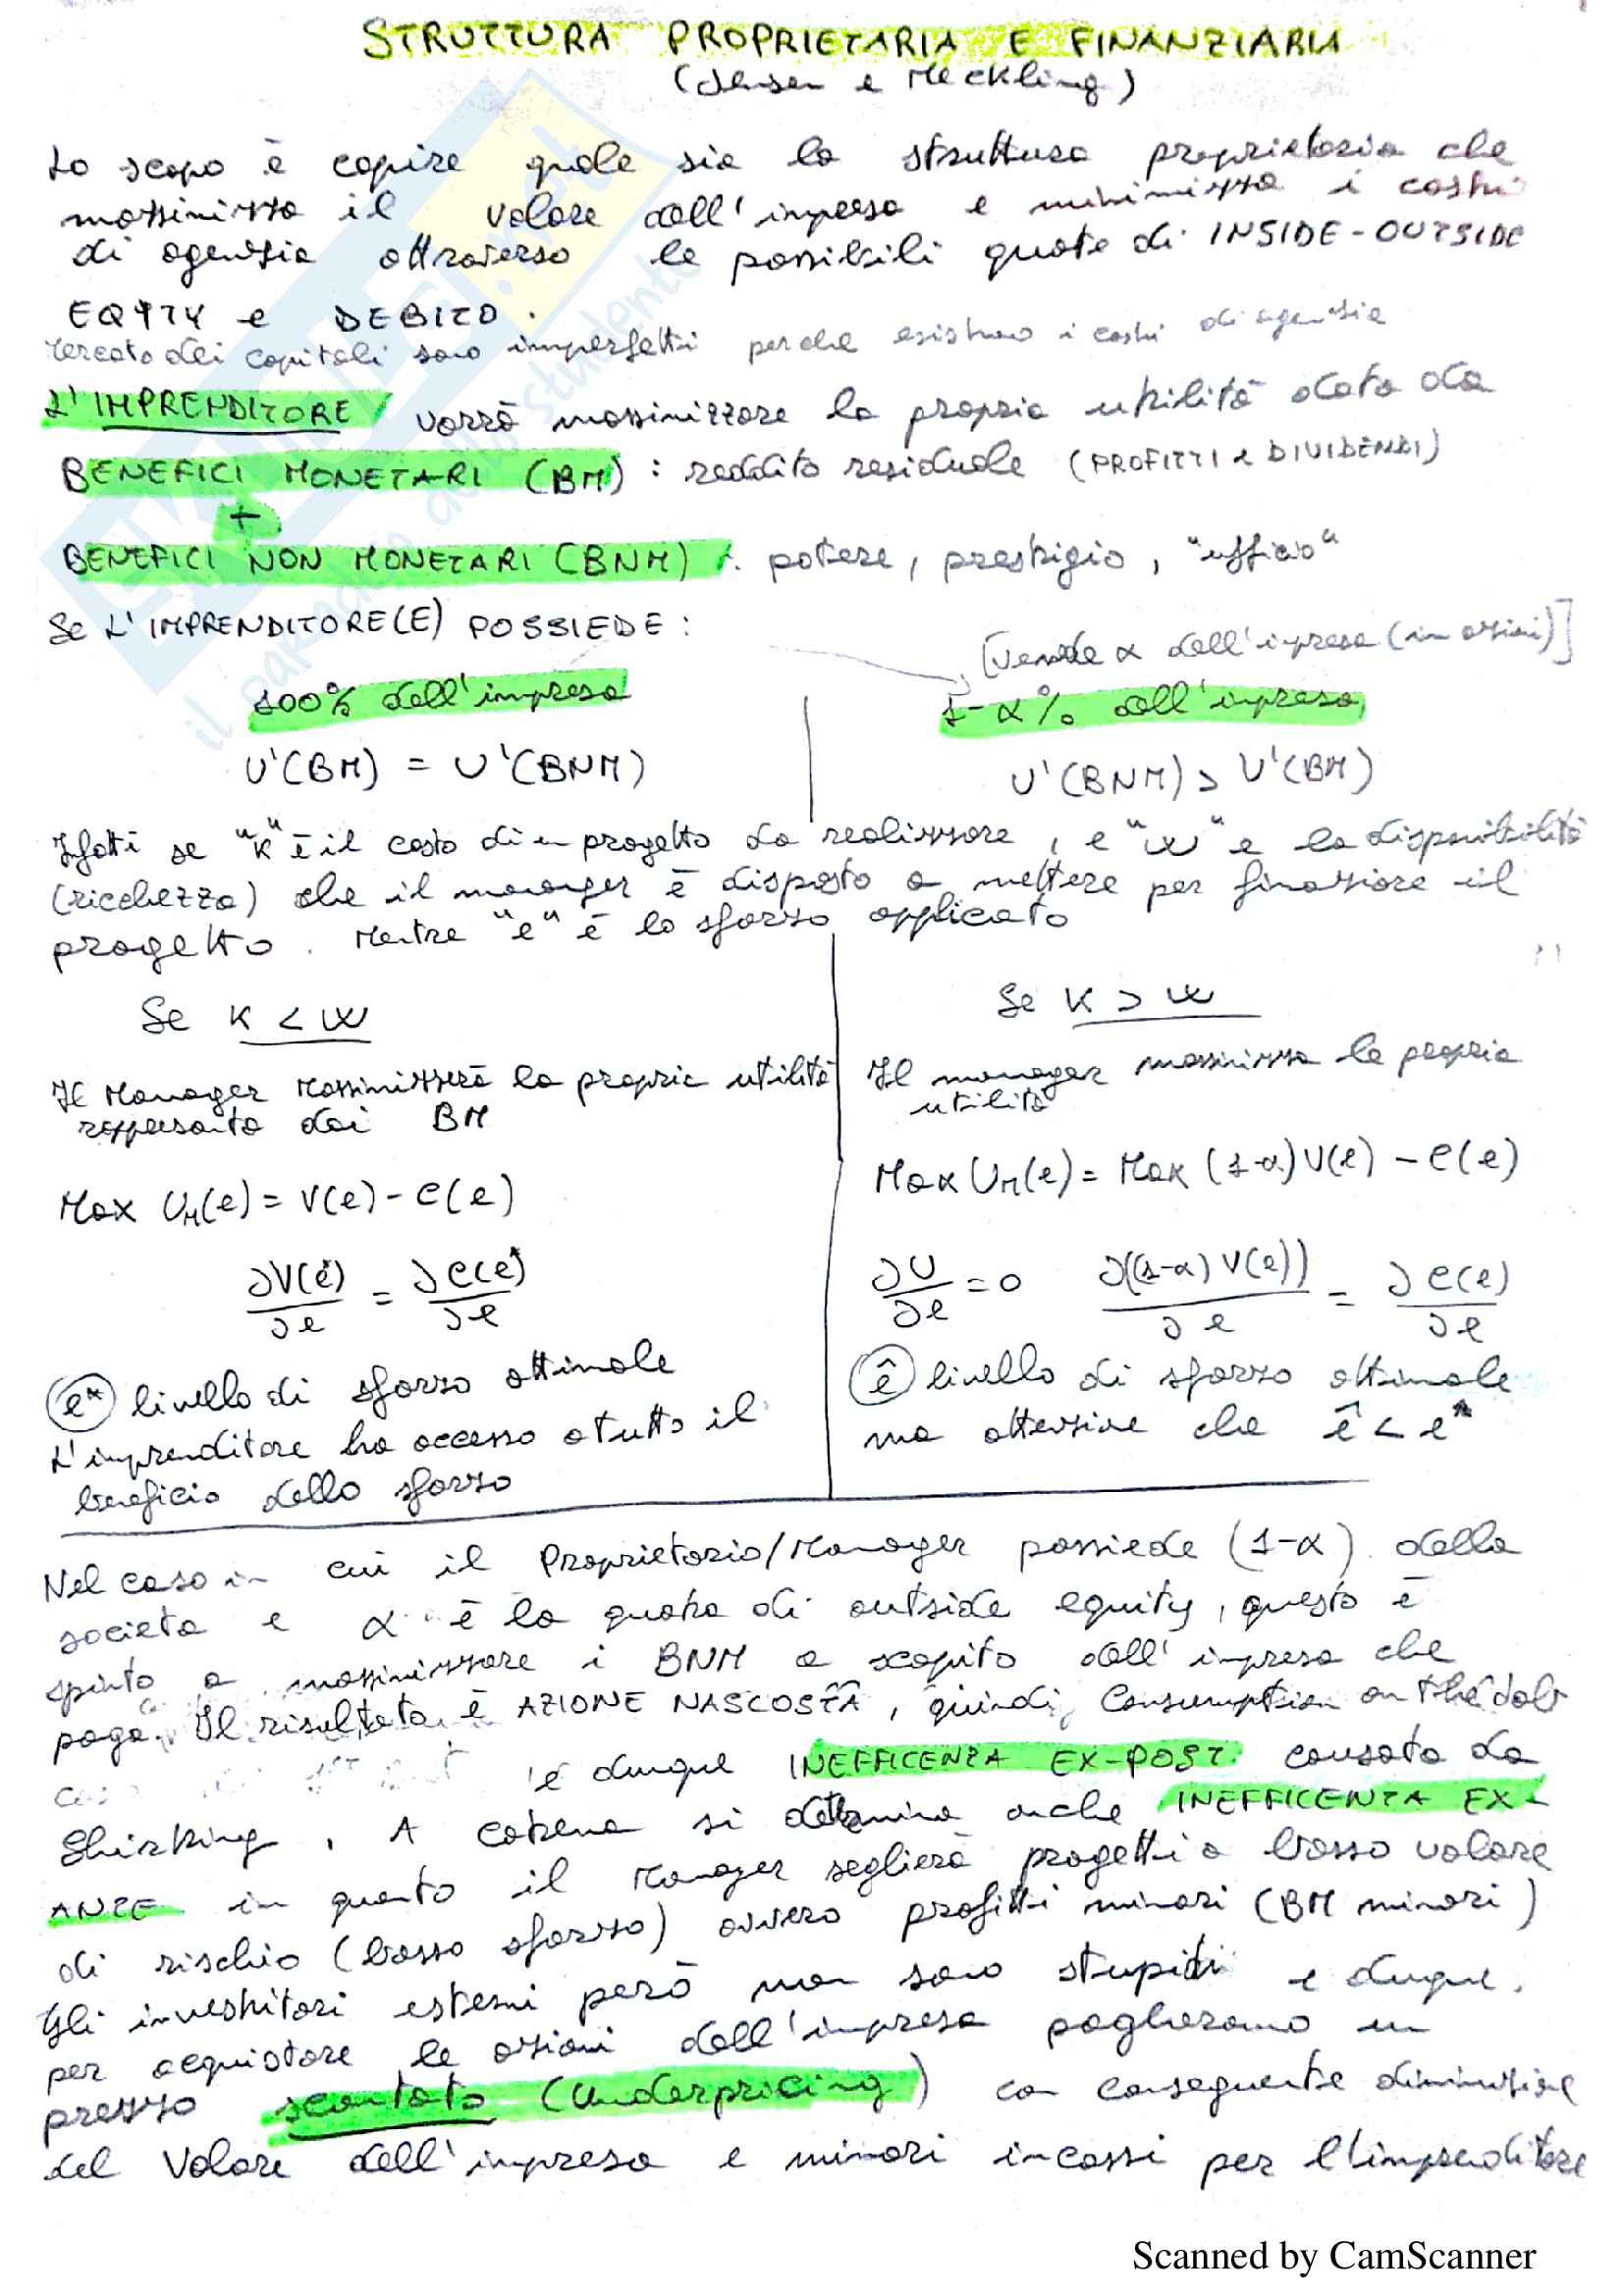 STRUTTURA PROPRIETARIA E FINANZIARIA
(Jensen e Meckling)
Lo scopo è capire quale sia la struttura proprietaria che
massimizza il valore dell'impresa e minimizza i costi
di agenzia attraverso le possibili quote di INSIDE-OUTSIDE
EQYTY e DEBITO.
Mercato dei capitali sono imperfetti perche esistono i costi di agenzia
L'IMPRENDITORE vorrà massimizzare la propria utilità data da
BENEFICI MONETARI (BM) : reddito residuale (PROFITTI e DIVIDENDI)
+
BENEFICI NON MONETARI (BNM) : potere, prestigio, "ufficio"
Se L'IMPRENDITORE(E) POSSIEDE :
[Vende α dell'impresa (in azioni)]
100% dell'impresa
1-α% dell'impresa
U'(BM) = U'(BNM)
U'(BNM) > U'(BM)
Ifatti se "K" è il costo di un progetto da realizzare, e "W" e la disponibilità
(ricchezza) che il manager è disposto a mettere per finanziare il
progetto. Mentre "e" è lo sforzo applicato
Se K < W
Il Manager massimizzerà la propria utilità
rappresentata dai BM
Max UM(e) = V(e) - C(e)
∂V(e)/∂e = ∂C(e)/∂e
e* livello di sforzo ottimale
L'imprenditore ha accesso a tutto il
beneficio dello sforzo
Se K > W
Il manager massimizza la propria
utilità
Max UM(e) = Max (1-α)V(e) - C(e)
∂U/∂e = 0 ∂((1-α)V(e))/∂e = ∂C(e)/∂e
ê livello di sforzo ottimale
ma attenzione che ê < e*
Nel caso in cui il Proprietario/Manager possiede (1-α) della
società e α è la quota di outside equity, questo è
spinto a massimizzare i BNM a scapito dell'impresa che
paga. Il risultato è AZIONE NASCOSTA, quindi, Consumption on the Job
è dunque INEFFICENZA EX-POST causata da
Shirking, A catena si determina anche INEFFICENZA EX-
ANTE in quanto il Manager seglierà progetti a basso valore
di rischio (basso sforzo) ovvero profitti minori (BM minori)
Gli investitori esterni però non sono stupidi e dunque,
per acquistare le azioni dell'impresa pagheranno un
prezzo scontato (Underpricing) con conseguente diminuzione
del Valore dell'impresa e minori incassi per l'imprenditore
Scanned by CamScanner
SKUOLA.net
il paradiso dello studente